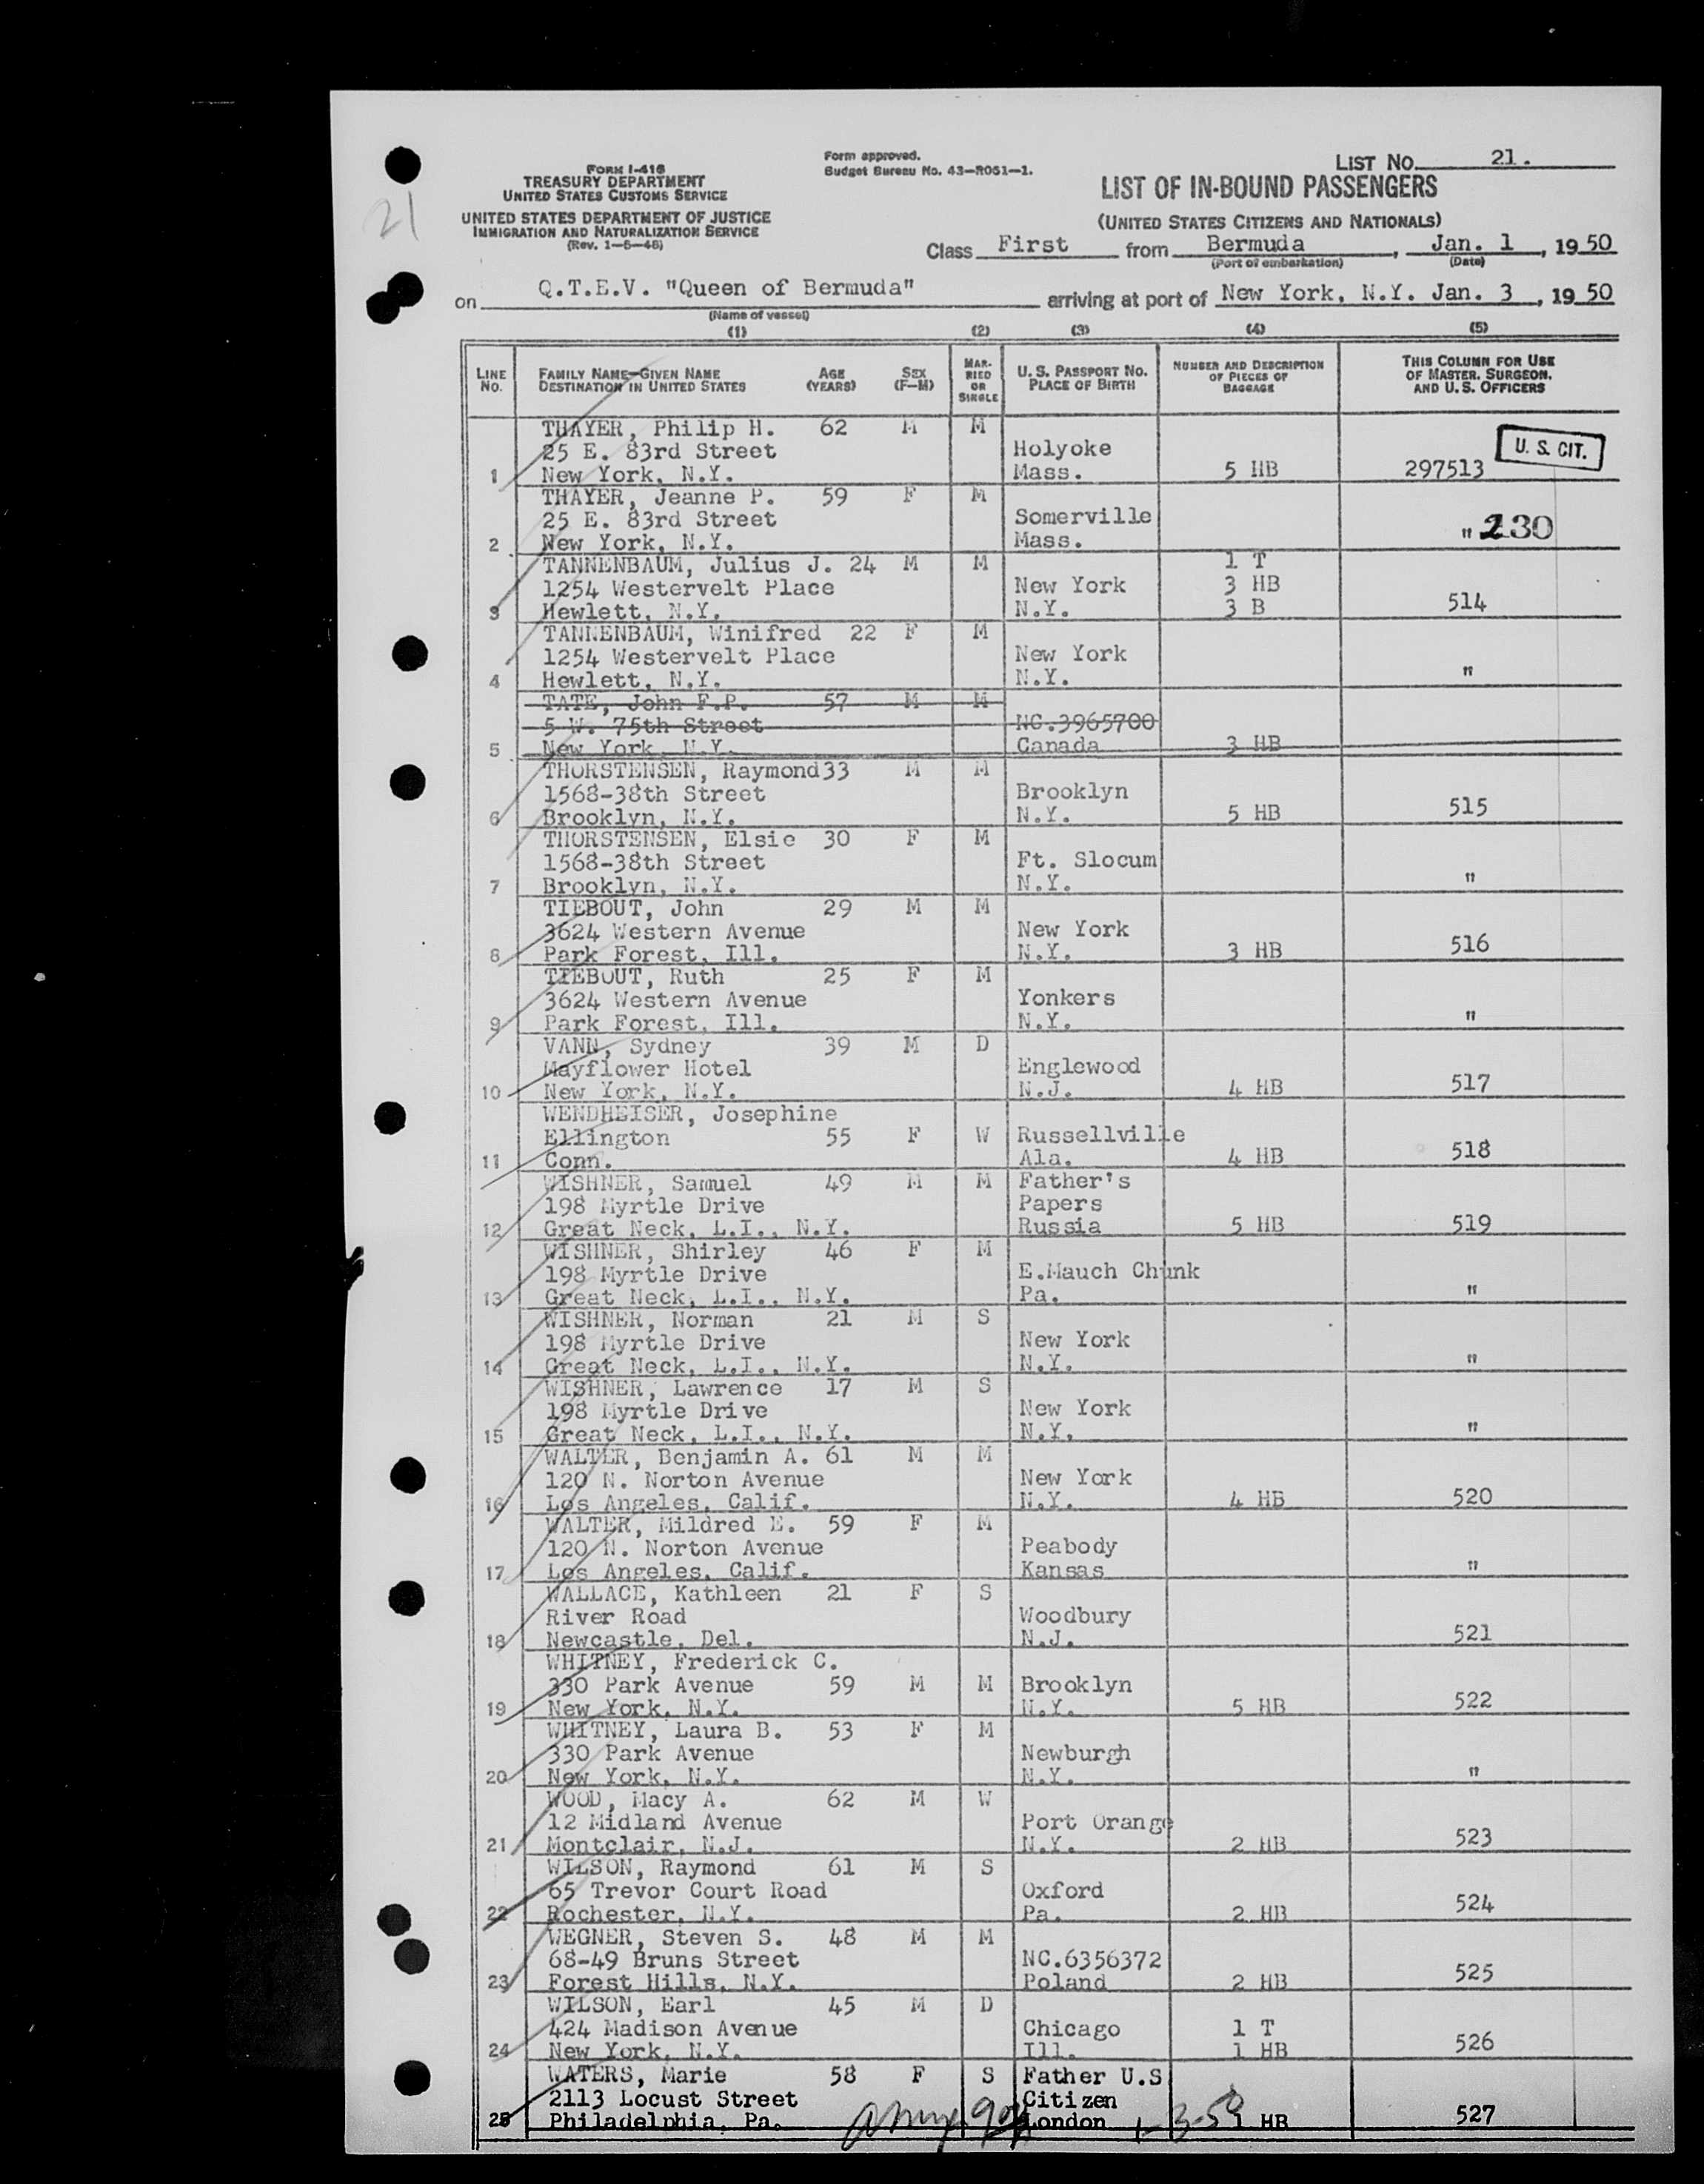 21
FORM I-416
TREASURY DEPARTMENT
UNITED STATES CUSTOMS SERVICE
UNITED STATES DEPARTMENT OF JUSTICE
IMMIGRATION AND NATURALIZATION SERVICE
(Rev. 1-5-48)
Form approved.
Budget Bureau No. 43-R051-1.
LIST NO. 21.
LIST OF IN-BOUND PASSENGERS
(UNITED STATES CITIZENS AND NATIONALS)
Class First from Bermuda, Jan. 1, 1950
(Port of embarkation) (Date)
on Q.T.E.V. "Queen of Bermuda" arriving at port of New York, N.Y. Jan. 3, 1950
(Name of vessel)
(1) (2) (3) (4) (5)
LINE NO. FAMILY NAME—GIVEN NAME DESTINATION IN UNITED STATES AGE (YEARS) SEX (F-M) MARRIED OR SINGLE U. S. PASSPORT NO. PLACE OF BIRTH NUMBER AND DESCRIPTION OF PIECES OF BAGGAGE THIS COLUMN FOR USE OF MASTER, SURGEON, AND U. S. OFFICERS
THAYER, Philip H. 62 M M
25 E. 83rd Street Holyoke U. S. CIT.
1 New York, N.Y. Mass. 5 HB 297513
THAYER, Jeanne P. 59 F M
25 E. 83rd Street Somerville " 230
2 New York, N.Y. Mass.
TANNENBAUM, Julius J. 24 M M 1 T
1254 Westervelt Place New York 3 HB
3 Hewlett, N.Y. N.Y. 3 B 514
TANNENBAUM, Winifred 22 F M
1254 Westervelt Place New York "
4 Hewlett, N.Y. N.Y.
TATE, John F.P. 57 M M
5 W. 75th Street NC.3965700
5 New York, N.Y. Canada 3 HB
THORSTENSEN, Raymond 33 M M
1568-38th Street Brooklyn
6 Brooklyn, N.Y. N.Y. 5 HB 515
THORSTENSEN, Elsie 30 F M
1568-38th Street Ft. Slocum
7 Brooklyn, N.Y. N.Y. "
TIEBOUT, John 29 M M
3624 Western Avenue New York
8 Park Forest, Ill. N.Y. 3 HB 516
TIEBOUT, Ruth 25 F M
3624 Western Avenue Yonkers
9 Park Forest, Ill. N.Y. "
VANN, Sydney 39 M D
Mayflower Hotel Englewood
10 New York, N.Y. N.J. 4 HB 517
WENDHEISER, Josephine
Ellington 55 F W Russellville
11 Conn. Ala. 4 HB 518
WISHNER, Samuel 49 M M Father's
198 Myrtle Drive Papers
12 Great Neck, L.I., N.Y. Russia 5 HB 519
WISHNER, Shirley 46 F M
198 Myrtle Drive E.Mauch Chunk
13 Great Neck, L.I., N.Y. Pa. "
WISHNER, Norman 21 M S
198 Myrtle Drive New York
14 Great Neck, L.I., N.Y. N.Y. "
WISHNER, Lawrence 17 M S
198 Myrtle Drive New York
15 Great Neck, L.I., N.Y. N.Y. "
WALTER, Benjamin A. 61 M M
120 N. Norton Avenue New York
16 Los Angeles, Calif. N.Y. 4 HB 520
WALTER, Mildred E. 59 F M
120 N. Norton Avenue Peabody
17 Los Angeles, Calif. Kansas "
WALLACE, Kathleen 21 F S
River Road Woodbury
18 Newcastle, Del. N.J. 521
WHITNEY, Frederick C.
330 Park Avenue 59 M M Brooklyn
19 New York, N.Y. N.Y. 5 HB 522
WHITNEY, Laura B. 53 F M
330 Park Avenue Newburgh
20 New York, N.Y. N.Y. "
WOOD, Macy A. 62 M W
12 Midland Avenue Port Orange
21 Montclair, N.J. N.Y. 2 HB 523
WILSON, Raymond 61 M S
65 Trevor Court Road Oxford
22 Rochester, N.Y. Pa. 2 HB 524
WEGNER, Steven S. 48 M M
68-49 Bruns Street NC.6356372
23 Forest Hills, N.Y. Poland 2 HB 525
WILSON, Earl 45 M D
424 Madison Avenue Chicago 1 T
24 New York, N.Y. Ill. 1 HB 526
WATERS, Marie 58 F S Father U.S
2113 Locust Street Citizen
25 Philadelphia, Pa. London 1-3-50 1 HB 527